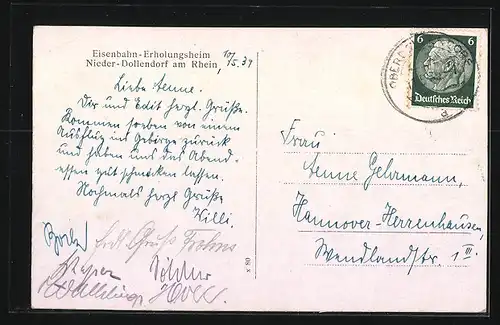 Eisenbahn-Erholungsheim
Nieder-Dollendorf am Rhein, 10/5.39
Liebe Aenne.
Dir und Edit herzl. Grüße.
Kommen soeben von einem
Ausflug ins Gebirge zurück
und haben uns das Abend-
essen gut schmecken lassen.
Nochmals herzl. Grüße
Willi.
x 80
6 6
Deutsches Reich
a
Frau
Aenne Gehrmann,
Hannover-Herrenhausen,
Wendlandstr. 1 III